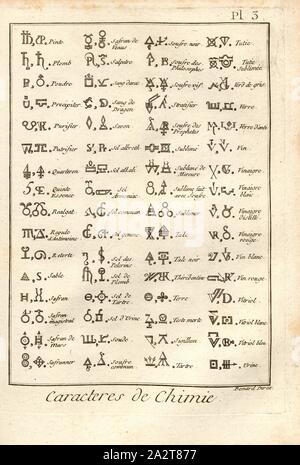 Pl 3
Pinte
Safran de Venus
Soufre noir
Tutie
Plomb
Salpetre
Soufre des Philosophes
Tutie Sublimée
Poudre
Sang danc
Soufre vif
Verd de gris
Precipiter
Sang de Dragon
Stratifier
Verre
Purifier
Savon
Soufre des Prophetes
Putrifier
Sel albroth
Sublimé
Vin
Quarteron
Sel alkali
Sublimé de Mercure
Vinaigre
Quinte Essence
Sel Armoniac
Sublimé fait avec Soufre
Vinaigre blanc
Realgat
Sel commun
Sublimer
Vinaigre distillé
Regule d'Antimoine
Sel gemme
Talc
Vinaigre rouge
Retorte
Sel des Pelerins
Talc noir
Vin blanc
Sable
Sel de Plomb
Thérébentine
Vin rouge
Safran
Sel de Tartre
Terre
Vitriol
Safran magistral
Sel d'Urine
Teste morte
Vitriol blanc
Safran de Mars
Soude
Vitriol bleu
Safranner
Soufre commun
Tartre
Urine
Benard Direx
Caracteres de Chimie.
alamy
Image ID: 2A2T877
www.alamy.com